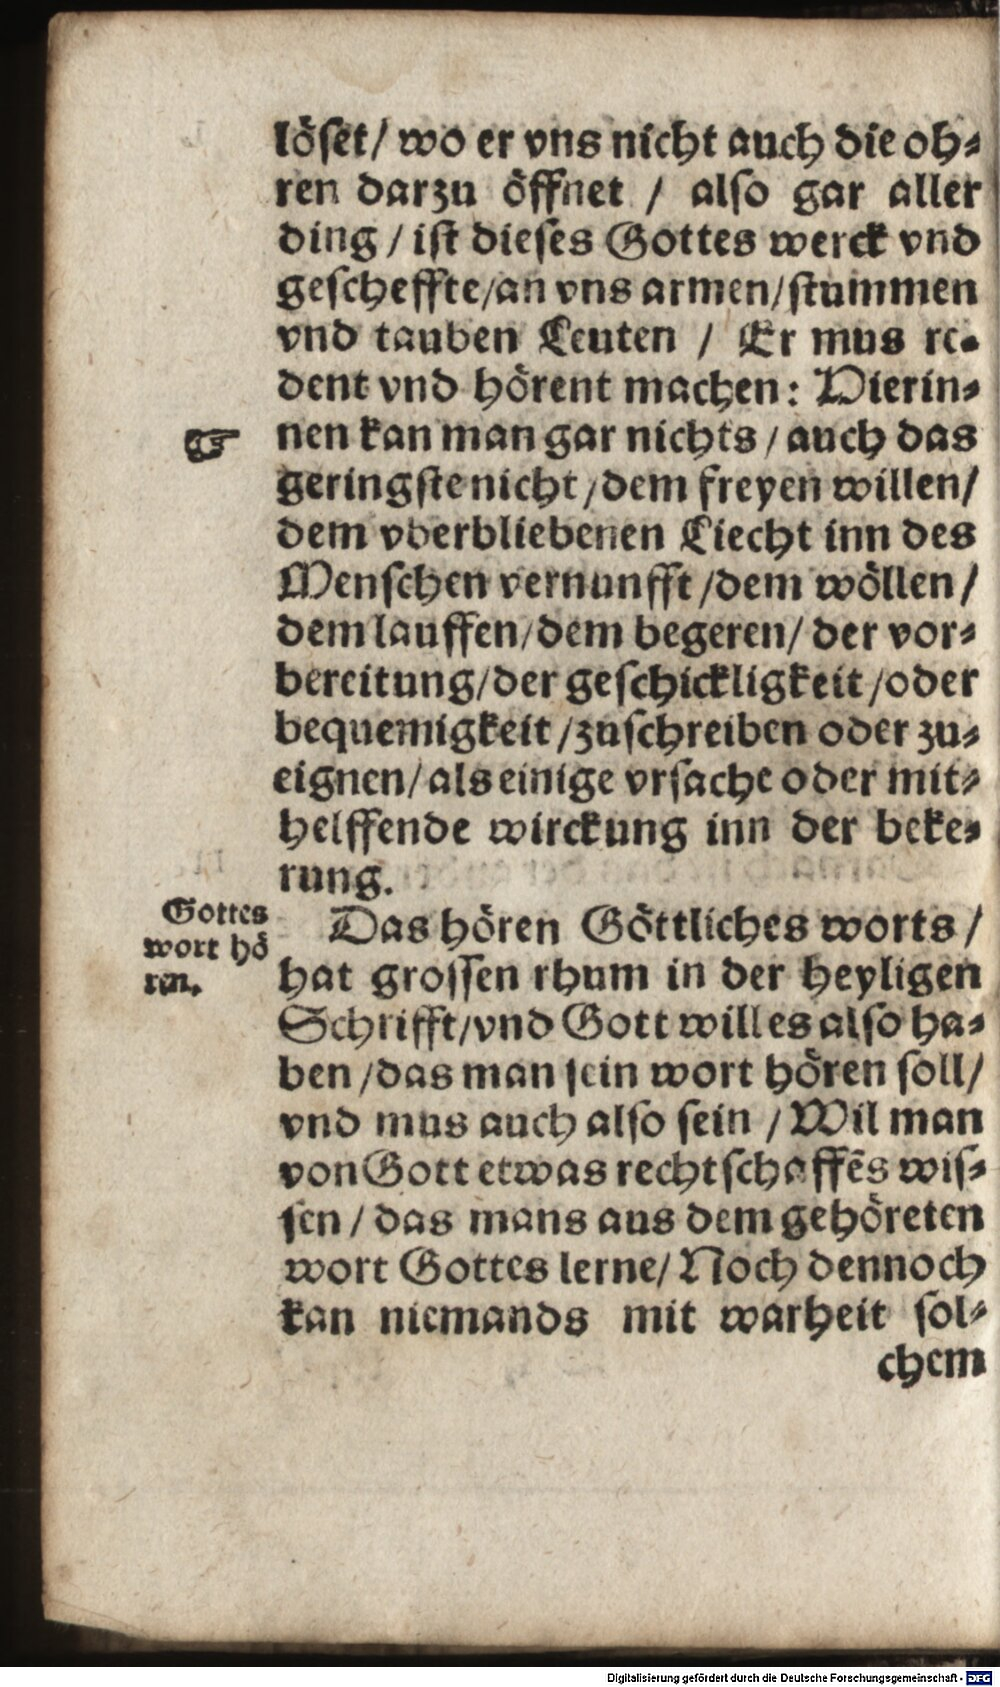 löſet/ wo er vns nicht auch die oh⸗
ren darzu öffnet / alſo gar aller
ding / iſt dieſes Gottes werck vnd
geſcheffte/an vns armen/ſtummen
vnd tauben Leuten / Er mus re⸗
dent vnd hörent machen: Hierin⸗
☞ nen kan man gar nichts / auch das
geringſte nicht /dem freyen willen/
dem vberbliebenen Liecht inn des
Menſchen vernunfft /dem wöllen/
dem lauffen/dem begeren/ der vor⸗
bereitung/der geſchickligkeit /oder
bequemigkeit /zuſchreiben oder zu⸗
eignen/ als einige vrſache oder mit⸗
helffende wirckung inn der beke⸗
rung.
Gottes
wort hö
ren.
Das hören Göttliches worts /
hat groſſen rhum in der heyligen
Schrifft/vnd Gott will es alſo ha⸗
ben /das man ſein wort hören ſoll/
vnd mus auch alſo ſein / Wil man
von Gott etwas rechtſchaffēs wiſ⸗
ſen / das mans aus dem gehöreten
wort Gottes lerne/ Noch dennoch
kan niemands mit warheit ſol⸗
chem
Digitalisierung gefördert durch die Deutsche Forschungsgemeinschaft - DFG